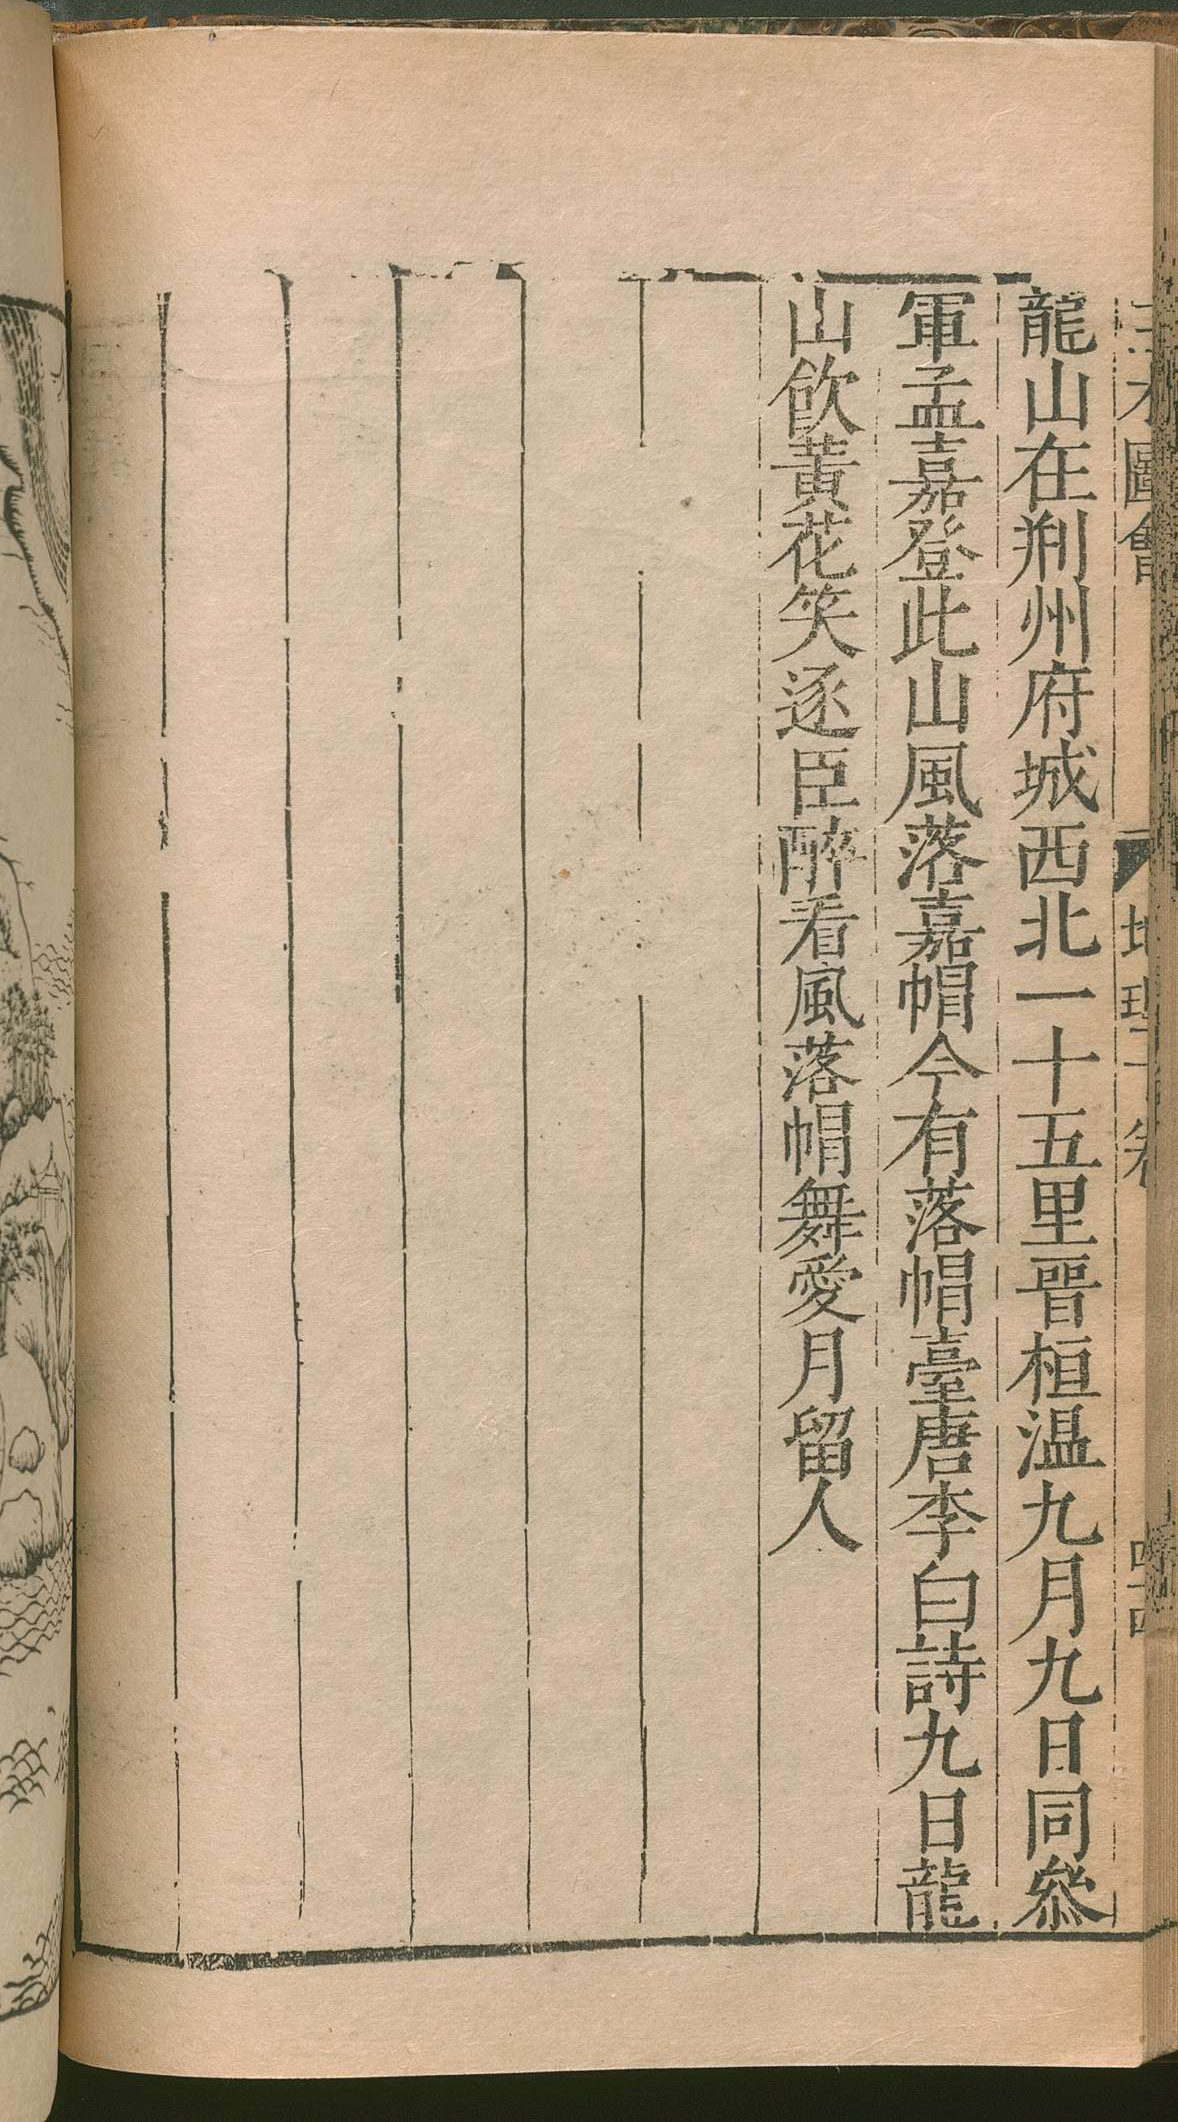 龍山在荆州府城西北一十五里晋桓温九月九日同叅
軍孟嘉登此山風落嘉帽今有落帽臺唐李白詩九日龍
山飲黃花笑逐臣醉看風落帽舞愛月留人